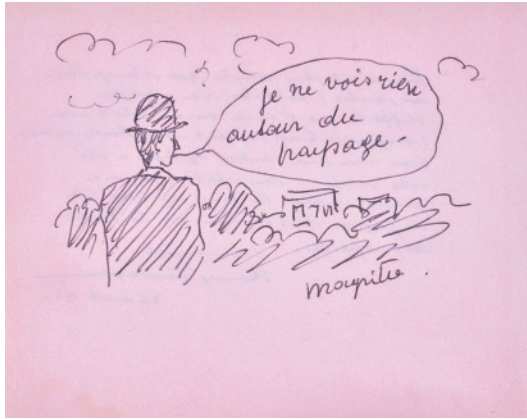 Je ne vois rien
autour du
paysage -
magritte.